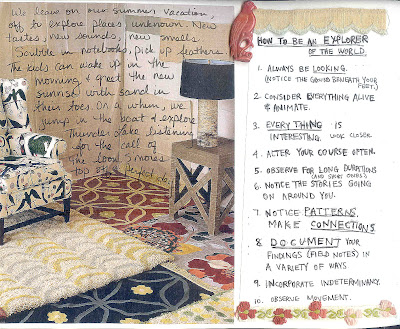 We leave on our summer vacation,
off to explore places unknown. New
tastes, new sounds, new smells.
Scribble in notebooks, pick up feathers.
The kids can wake up in the
morning & greet the new
sunrise with sand in
their toes. On a whim, we
jump in the boat & explore
Thunder Lake listening
for the call of
the loon. S'mores
top off a perfect
HOW TO BE AN EXPLORER
OF THE WORLD.
1. ALWAYS BE LOOKING.
(NOTICE THE GROUND BENEATH YOUR
FEET.)
2. CONSIDER EVERYTHING ALIVE
& ANIMATE.
3. EVERYTHING IS
INTERESTING. LOOK CLOSER.
4. ALTER YOUR COURSE OFTEN.
5. OBSERVE FOR LONG DURATIONS
(AND SHORT ONES).
6. NOTICE THE STORIES GOING
ON AROUND YOU.
7. NOTICE PATTERNS.
MAKE CONNECTIONS.
8. DOCUMENT YOUR
FINDINGS (FIELD NOTES) IN
A VARIETY OF WAYS.
9. INCORPORATE INDETERMINACY.
10. OBSERVE MOVEMENT.